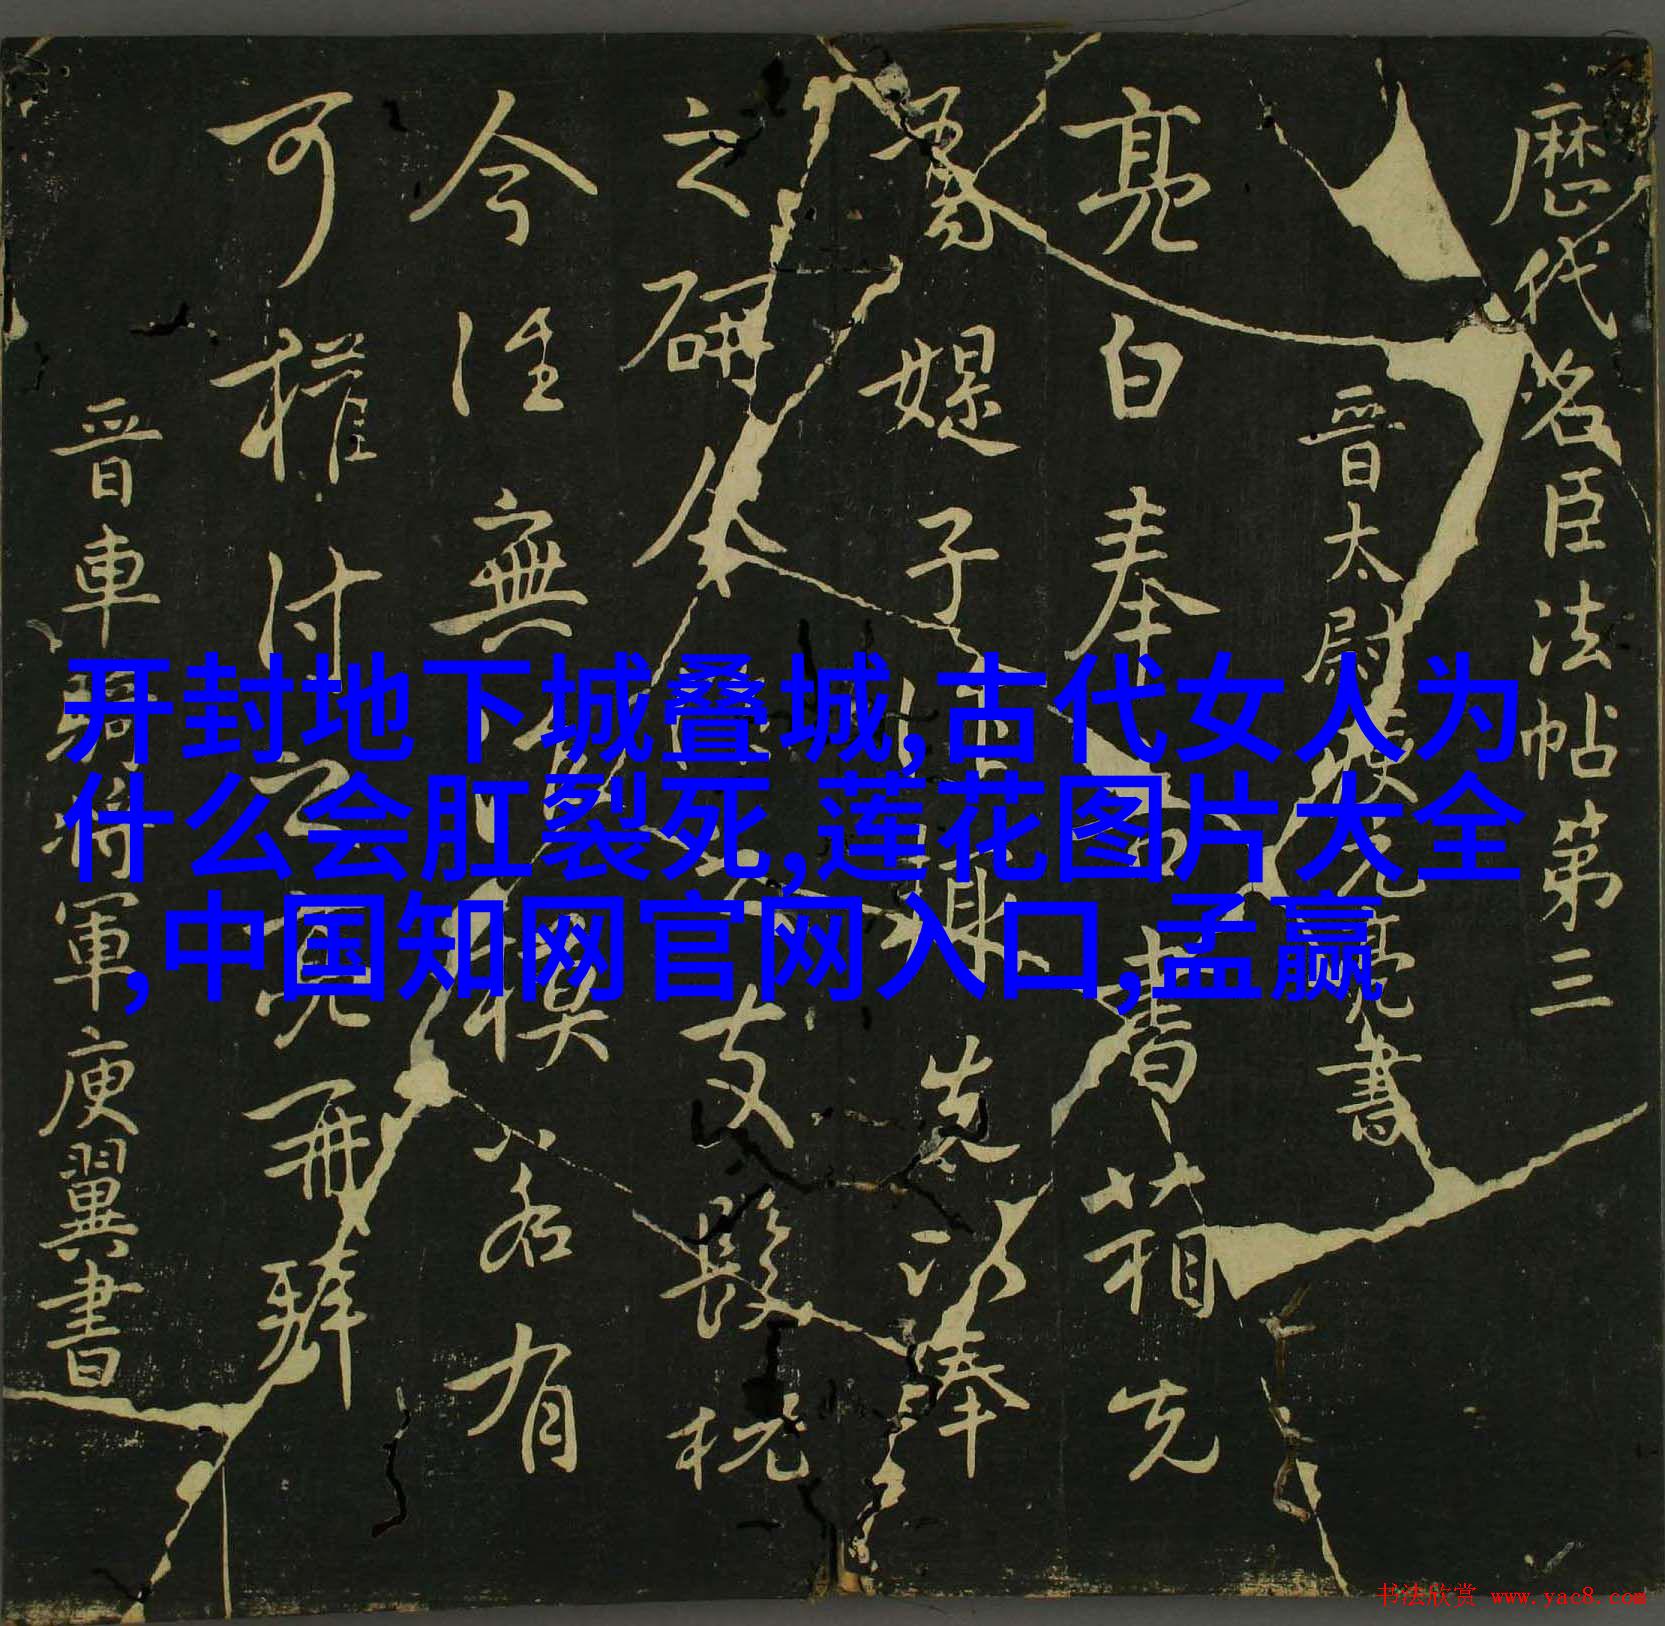 厯代名臣法帖第三
晉太尉庾亮書
亮白奉
箱先
子
先以奉
之研
支
今
無
若有
可權付之亮再拜
晉車騎將軍庾翼書
开封地下城叠城,古代女人为
什么会肛裂死,莲花图片大全
,中国知网官网入口,孟赢
书法欣赏 www.yac8.com